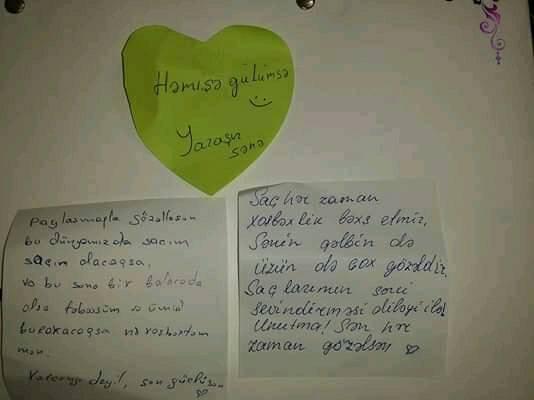 Həmişə gülümsə
Yaraşır
sənə
Paylaşmaqla gözəlləşən
bu dünyamızda saçım
saçın olacaqsa,
və bu sənə bir balaca da
olsa təbəssüm və ümid
buraxacaqsa nə xoşbəxtəm
mən.
Xətərsiz deyil, sən güclüsən
Saç hər zaman
xoşbəxlik bəxş etmir,
Sənin qəlbin də
üzün də çox gözəldir.
Saçlarımın səni
sevindirməsi diləyi ilə!
Unutma! Sən hər
zaman gözəlsən